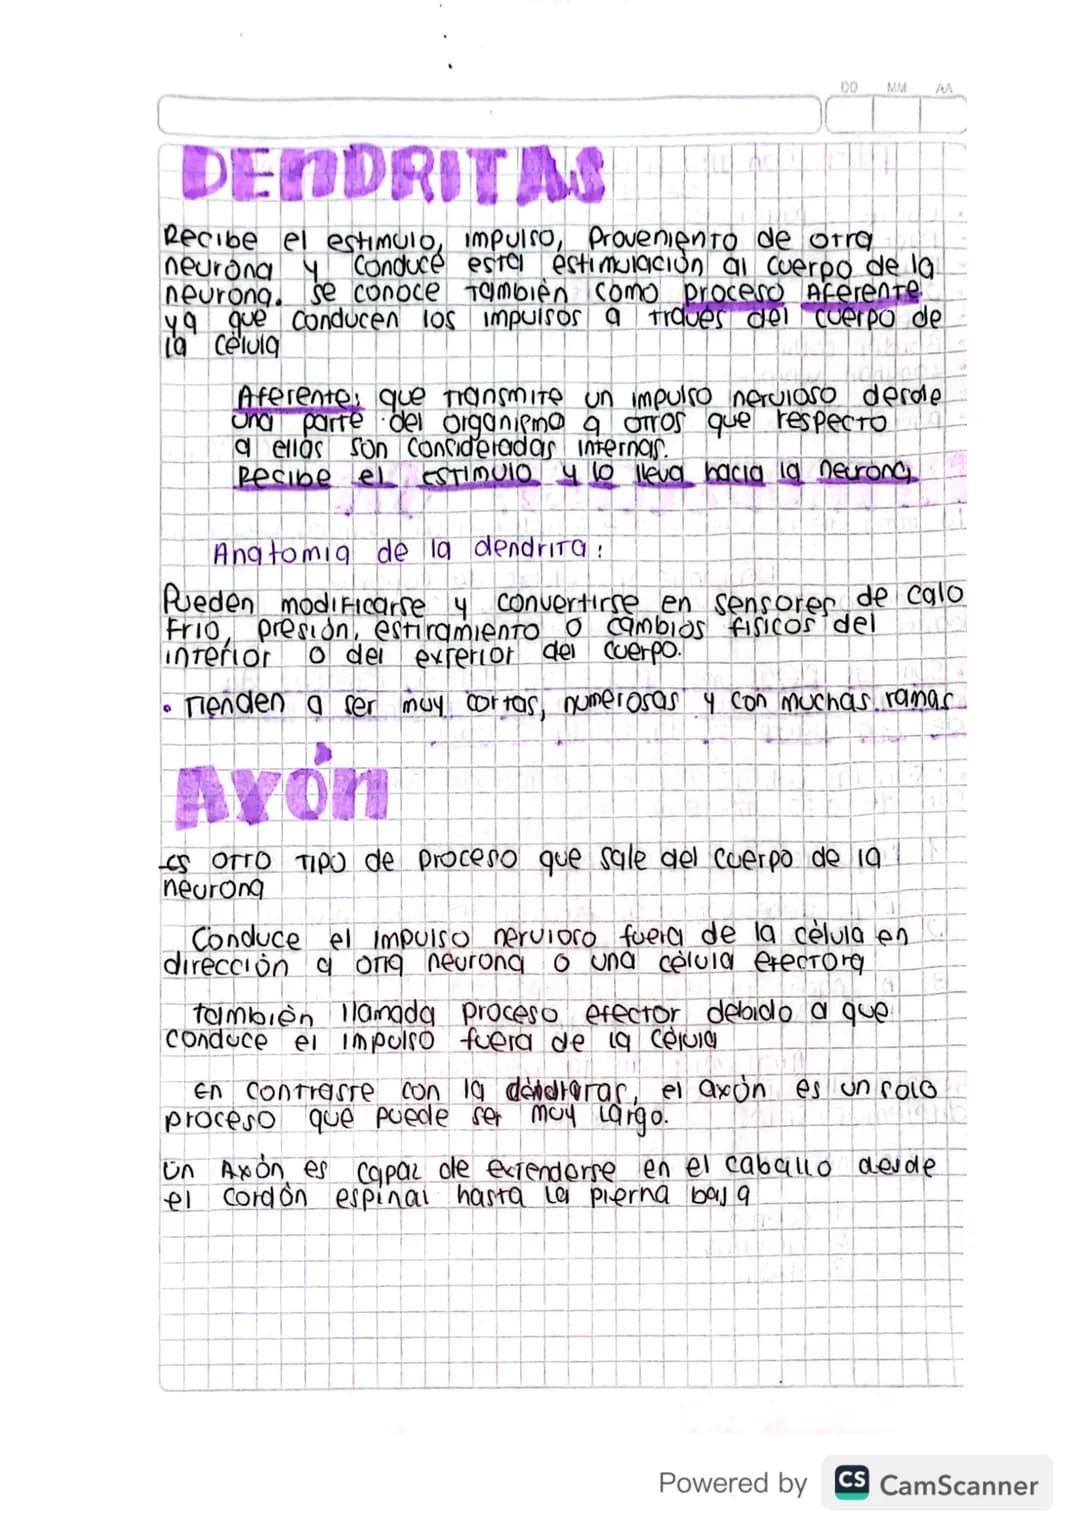 DD MM AA
DENDRITAS
Recibe el estimulo, impulso, Proveniento de otra
neurona y Conduce esta estimulación al cuerpo de la
neurona. se conoce también como proceso Aferente
ya que conducen los impulsos a través del cuerpo de
la célula
Aferente: que transmite un impulso nervioso desde
una parte del organismo a otros que respecto
a ellas son consideradas internas.
Recibe el ESTIMULO y lo lleva hacia la neurona.
Anatomia de la dendrita:
Pueden modificarse y convertirse en sensores de calo
Frio, presión, estiramiento o cambios fisicos del
interior o del exterior del cuerpo.
• Tienden a ser muy cortas, numerosas y con muchas ramas
Axón
es otro tipo de proceso que sale del cuerpo de la
neurona
Conduce el impulso nervioso fuera de la célula en
dirección a otra neurona o una célula efectora
también llamada proceso efector debido a que
conduce el impulso fuera de la célula
En contraste con la , el axón es un solo
proceso que puede ser muy largo.
Un Axón es capaz de extenderse en el caballo desde
el cordón espinal hasta la pierna baja
Powered by CS CamScanner